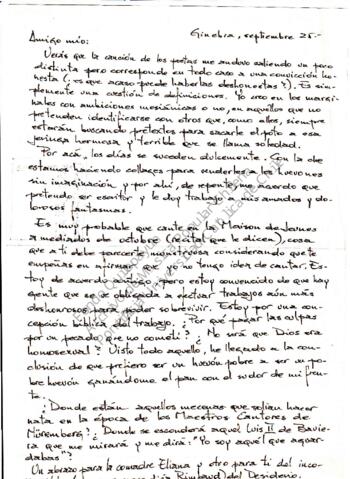 Ginebra, septiembre 25.-
Amigo mio:
Verás que la canción de los poetas me anduvo saliendo un poco
distinta pero corresponde en todo caso a una convicción ho-
nesta (¿es que acaso puede haberlas deshonestas?). Es sim-
plemente una cuestión de definiciones. Yo creo en los margi-
nales con ambiciones mesiánicas o no, en aquellos que no
pretenden identificarse con otros que, como ellos, siempre
estarán buscando pretextos para sacarle el poto a esa
jeringa hermosa y terrible que se llama soledad.
Por acá, los días se suceden dulcemente. Con la
estamos haciendo collages para venderlos a huevones
sin imaginación y por ahí, de repente, me acuerdo que
pretendo ser escritor y le doy trabajo a mis amados y do-
lorosos fantasmas.
Es muy probable que cante en la Maison de Jeunes
a mediados de octubre (recital que le dicen), cosa
que a ti debe parecerte monstruosa considerando que te
empeñas en afirmar que yo no tengo idea de cantar. Es-
toy de acuerdo amigo, pero estoy convencido de que hay
gente que se ve obligada a efectuar trabajos aún más
deshonrosos para poder sobrevivir. Estoy por una con-
cepción bíblica del trabajo. ¿Por qué pagar las culpas
por un pecado que no cometí? ¿No será que Dios era
homosexual? Visto todo aquello, he llegado a la con-
clusión de que prefiero ser un huevón pobre a ser un po-
bre huevón ganándome el pan con el sudor de mi fren-
te.
¿Donde están aquellos mecenas que solían hacer
nata en la época de los Maestros Cantores de
Nüremberg? ¿Donde se esconderá aquel Luis II de Bavie-
ra que me mirará y me dirá: "Yo soy aquel que aguar-
dabas"?
Un abrazo para la comadre Eliana y otro para ti del inco-
Rimbaud del Desiderio.